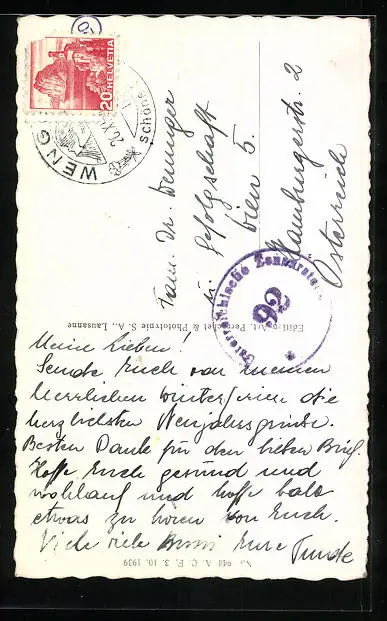 20 HELVETIA
WENG
schöne
Fam. Dr. Weninger
Wien 5.
Hamburgerstr. 2
Österreich
Österreichische Zensurstelle
92
Edition Art. Perrochet & Phototypie S. A., Lausanne
Meine Lieben!
Sende Euch von meinen
herrlichen Winterferien die
herzlichsten Neujahrsgrüsse.
Besten Dank für den lieben Brief.
Hoffe Euch gesund und
wohlauf und hoffe bald
etwas zu hören von Euch.
Viele viele Bussi Eure
No 940 A. C. F. 3. 10. 1939